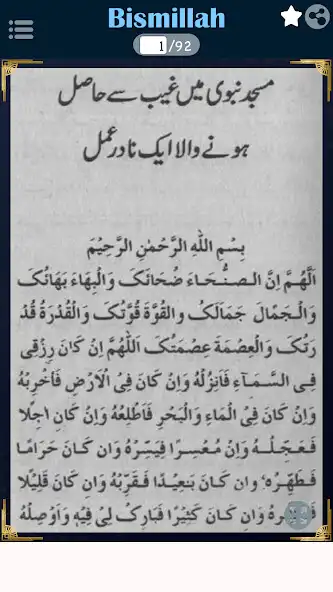 Bismillah
1/92
مسجد نبوی میں غیب سے حاصل
ہونے والا ایک نادر عمل
بِسْمِ اللهِ الرَّحْمٰنِ الرَّحِيْمِ
اَللّٰهُمَّ اِنَّ الصُّحَاءَ ضُحَائَكَ وَالْبِهَاءَ بَهَائَكَ
وَالْجَمَالَ جَمَالَكَ والْقُوَّةَ قُوَّتُكَ وَالْقُدْرَةَ قُدْ
رَتُكَ وَالْعِصْمَةَ عِصْمَتُكَ اَللّٰهُمَّ اِنْ كَانَ رِزْقِی
فِی السَّمَآءِ فَانْزِلْهُ وَاِنْ كَانَ فِی الْاَرْضِ فَاَخْرِجْهُ
وَاِنْ كَانَ فِی الْمَاءِ وَالْبَحْرِ فَاَطْلِعْهُ وَاِنْ كَانَ اٰجِلًا
فَعَجِّلْهُ وَاِنْ مُعْسِرًا فَيَسِّرْهُ وَاِن كَانَ حَرَامًا
فَطَهِّرْهُ وَاِن كَانَ بَعِيْدًا فَقَرِّبْهُ وَاِن كَانَ قَلِيْلًا
وَاِن كَانَ كَثِيْرًا فَبَارِكْ لِی فِيْهِ وَاَوْصِلْهُ